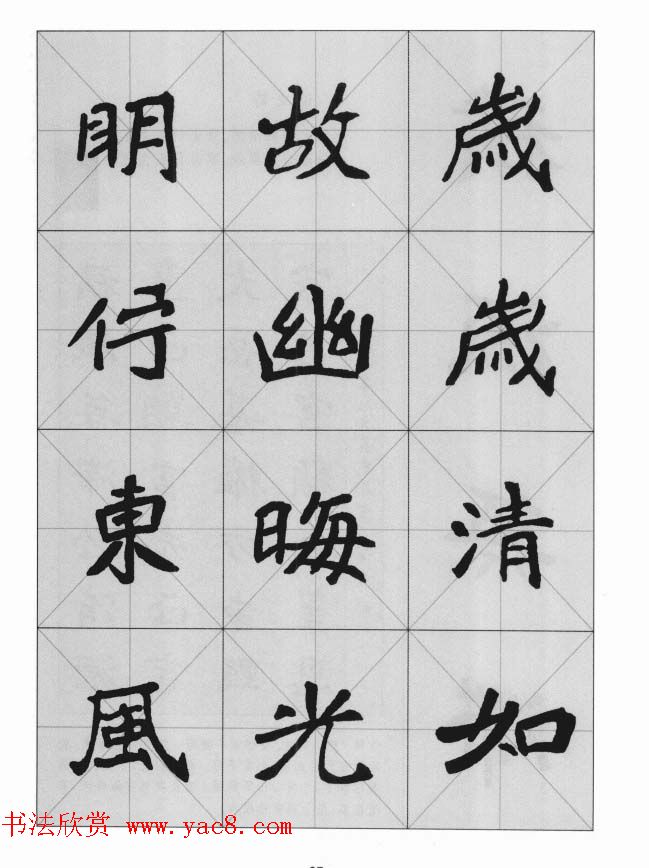 歲歲清如
故幽晦光
明佇東風
书法欣赏 www.yac8.com